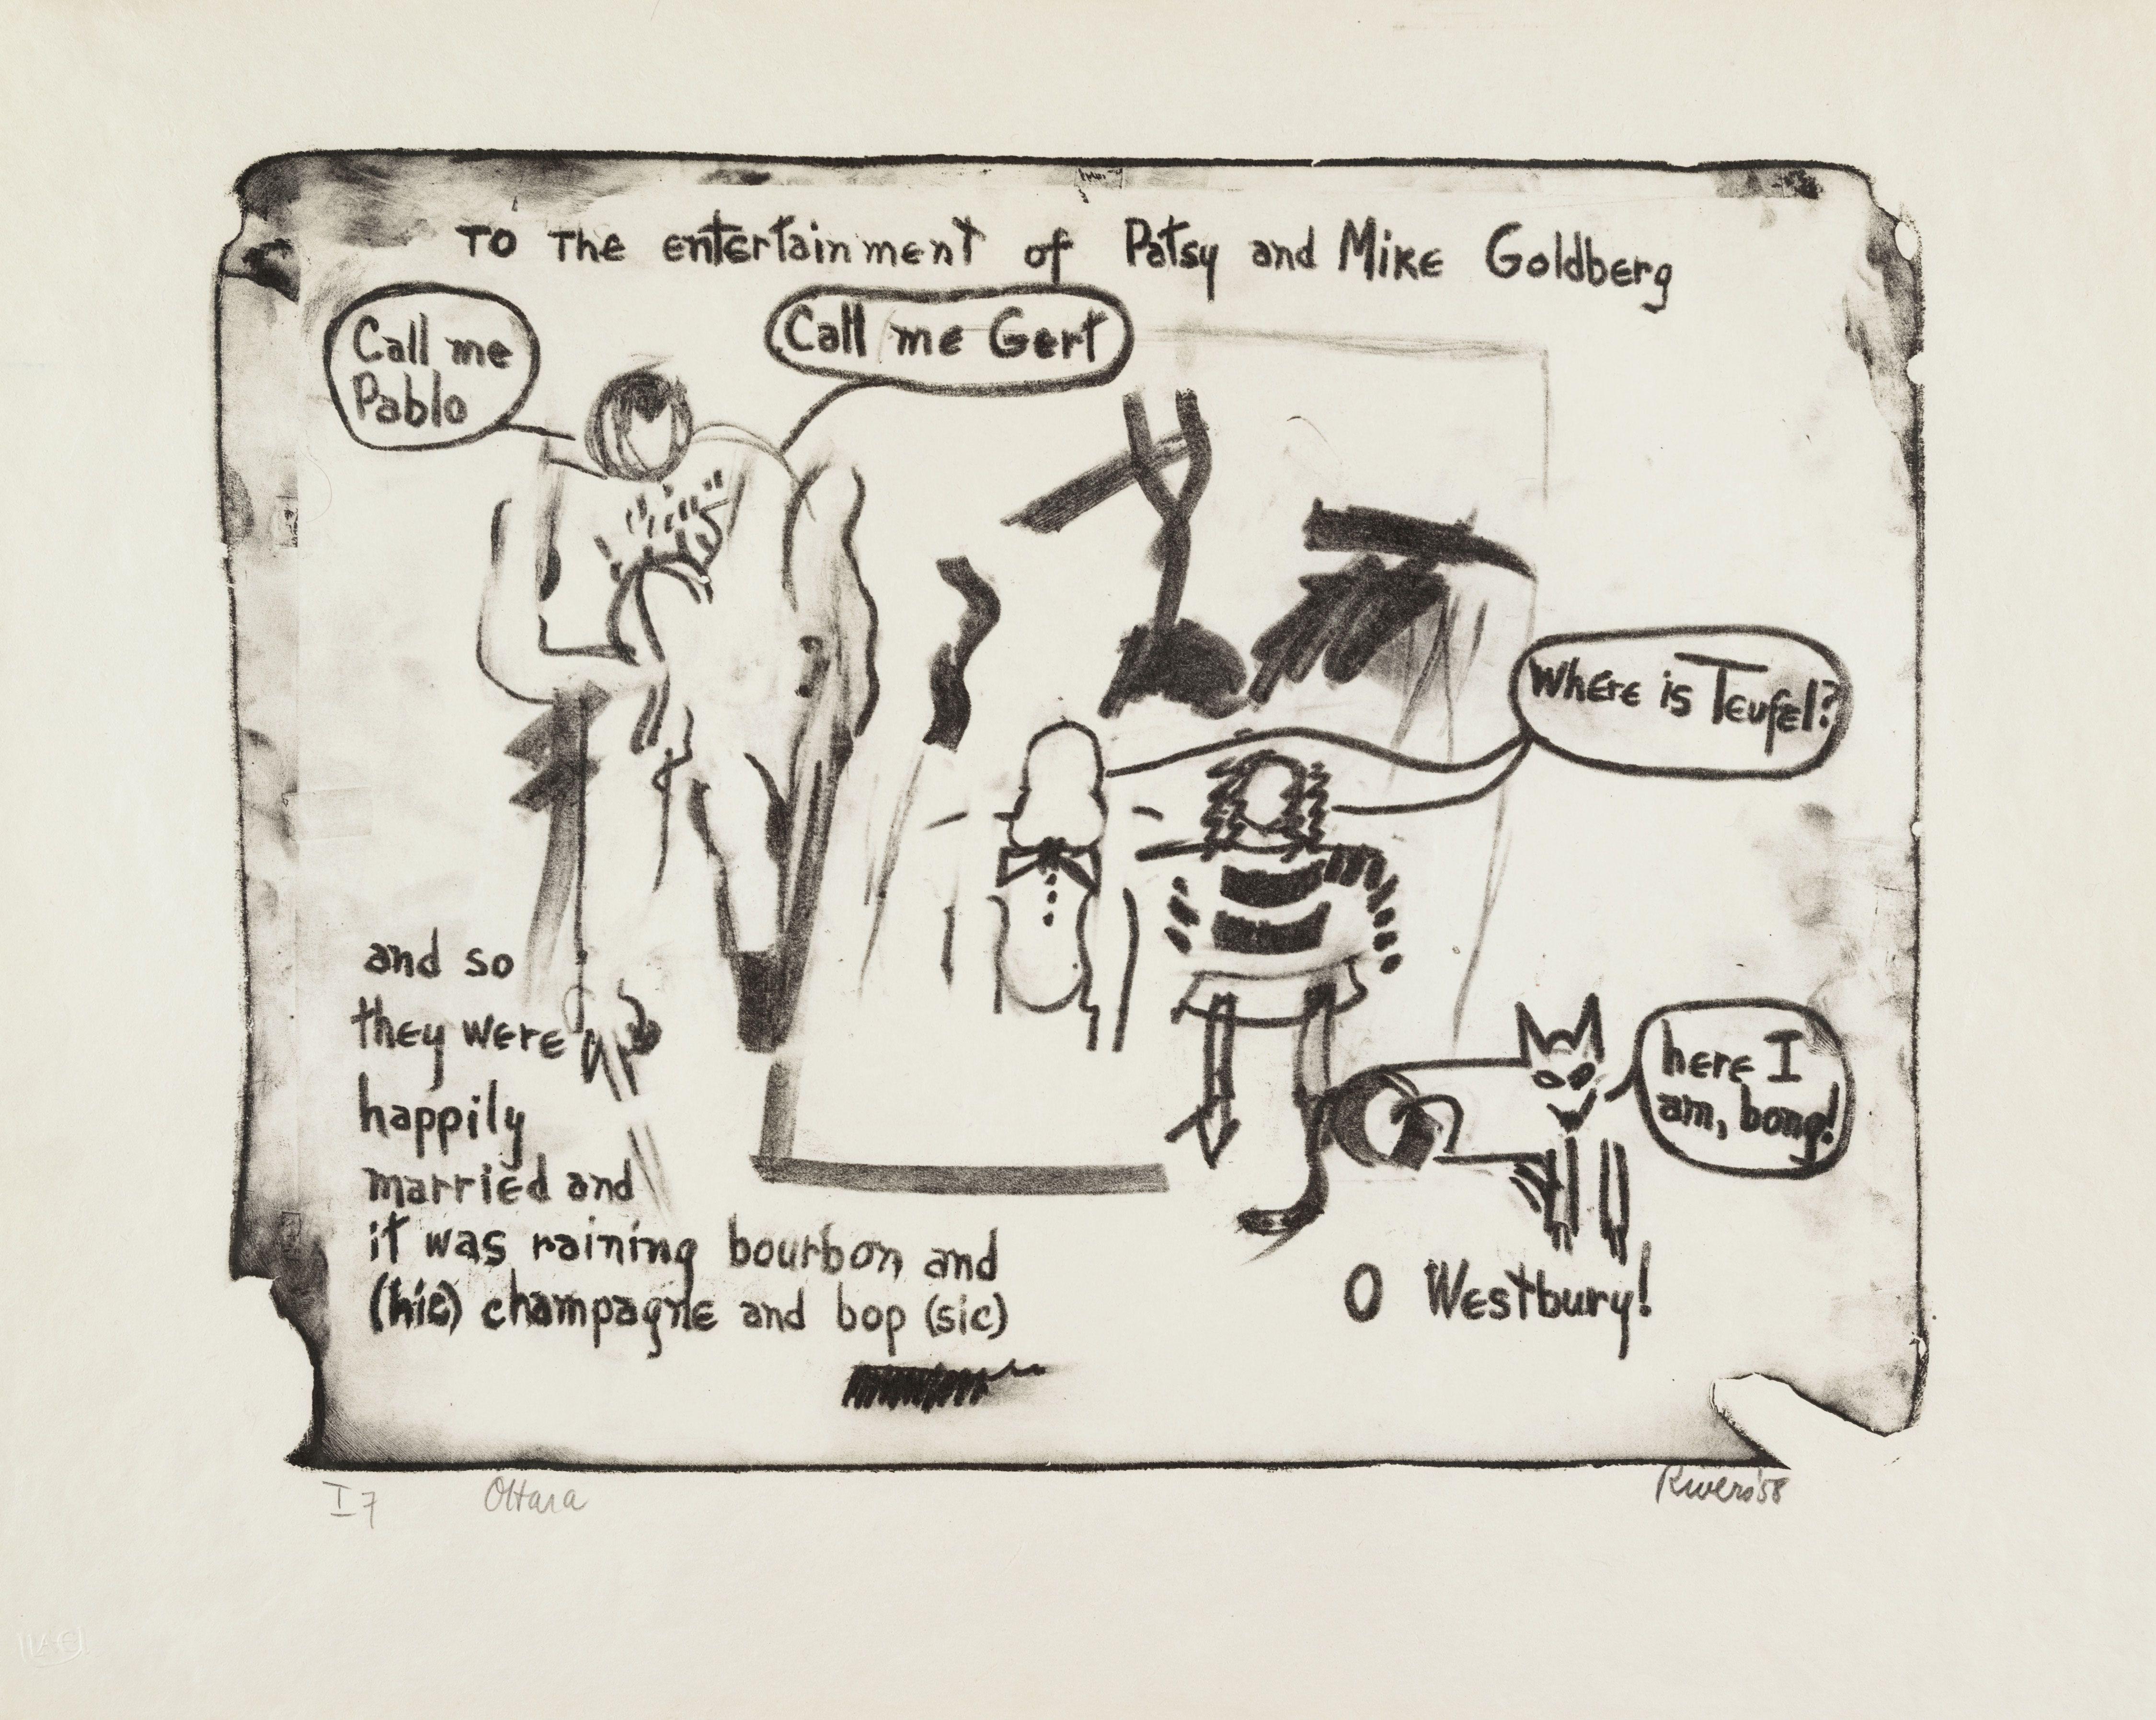 TO The entertainment of Patsy and Mike Goldberg
Call me
Pablo
Call me Gert
Where is Teufel?
here I
am, bong!
and so
they were
happily
married and
it was raining bourbon and
(hic) champagne and bop (sic)
O Westbury!
I 7
OHara
Rivers '58